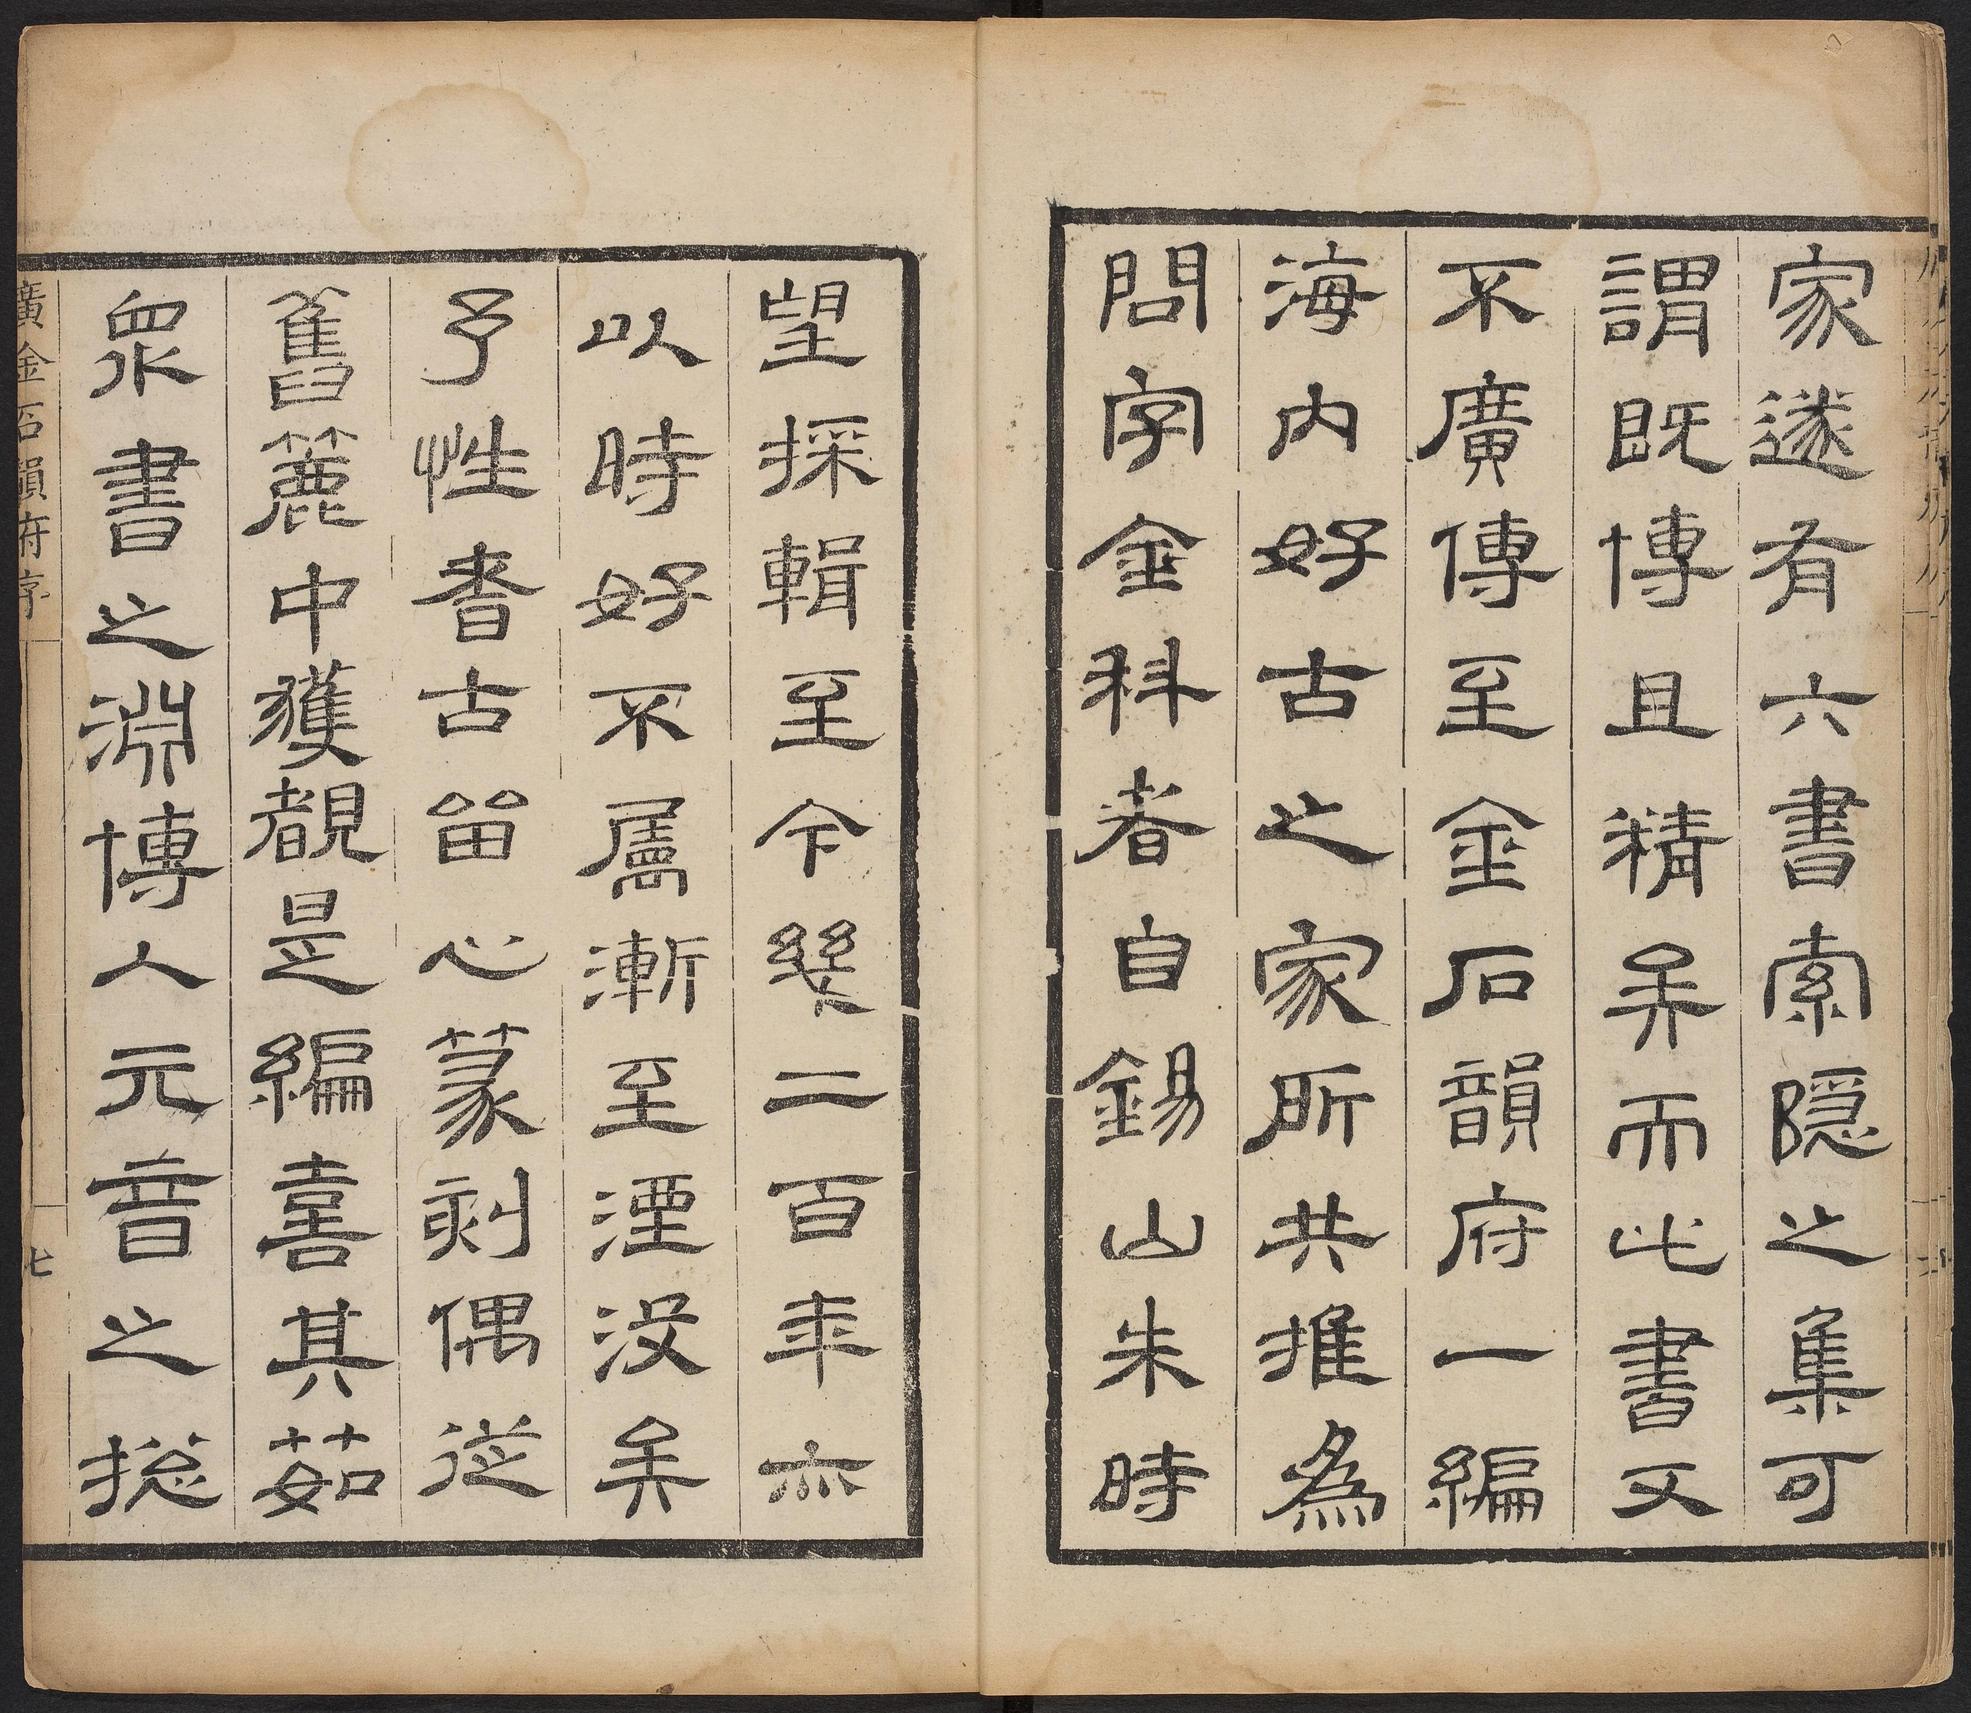 家遂有六書索隱之集可
謂既博且精矣而此書又
不廣傳至金石韻府一編
海內好古之家所共推為
問字金科者自錫山朱時
望採輯至今幾二百年亦
以時好不屬漸至湮沒矣
予性耆古留心篆刻偶從
舊簏中獲覩是編喜其茹
眾書之淵博人元音之揔
廣金石韻府序
七